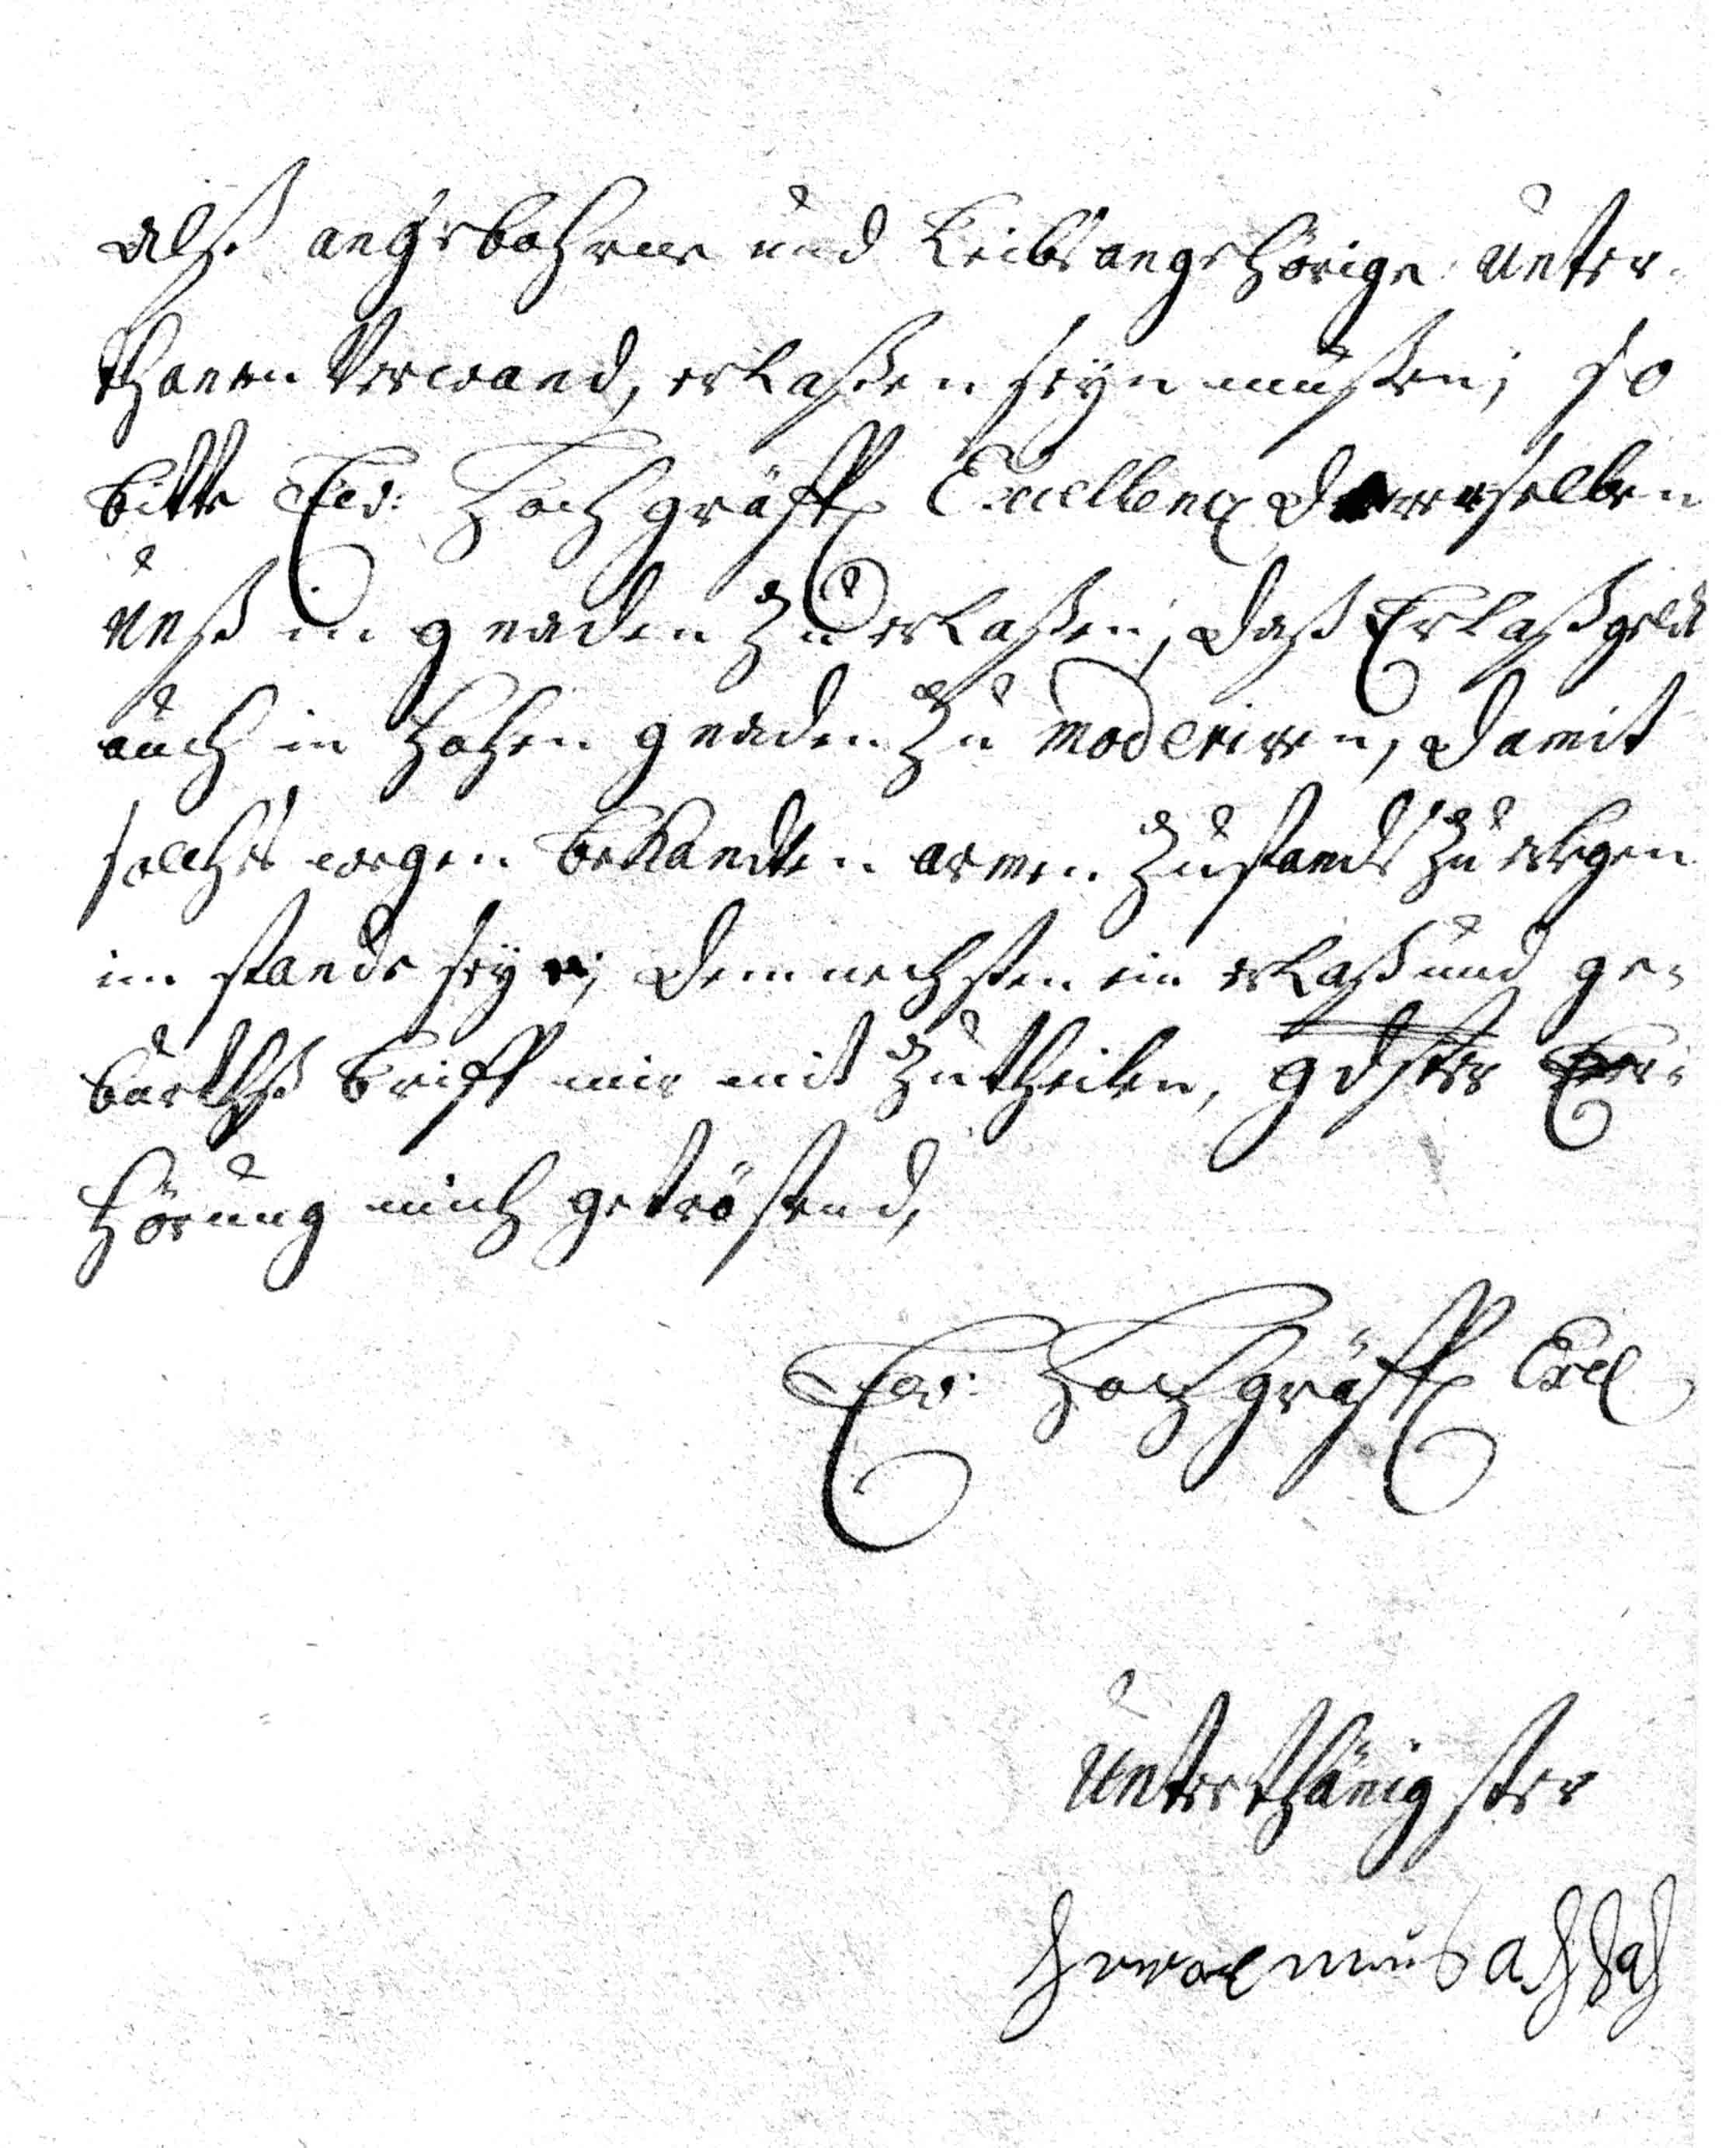 alß angebohrne und Leibsangehörige Unter-
thanen Verwand, erlaßen seyn müßen; so
bitte Ew: Hochgräffl Excellenz derenselben
unß in gnaden zu erlaßen, daß Erlaßgeldt
auch in hohen gnaden zu moderiren, damit
solches wegen bekandten armen Zustands zu erlegen
im stande seye; demnechsten ein erlaß und ge-
burths brieff mir mit zutheilen, gdster Er-
hörung mich getröstend,
Ew: Hochgräffl Excl
Unterthänigster